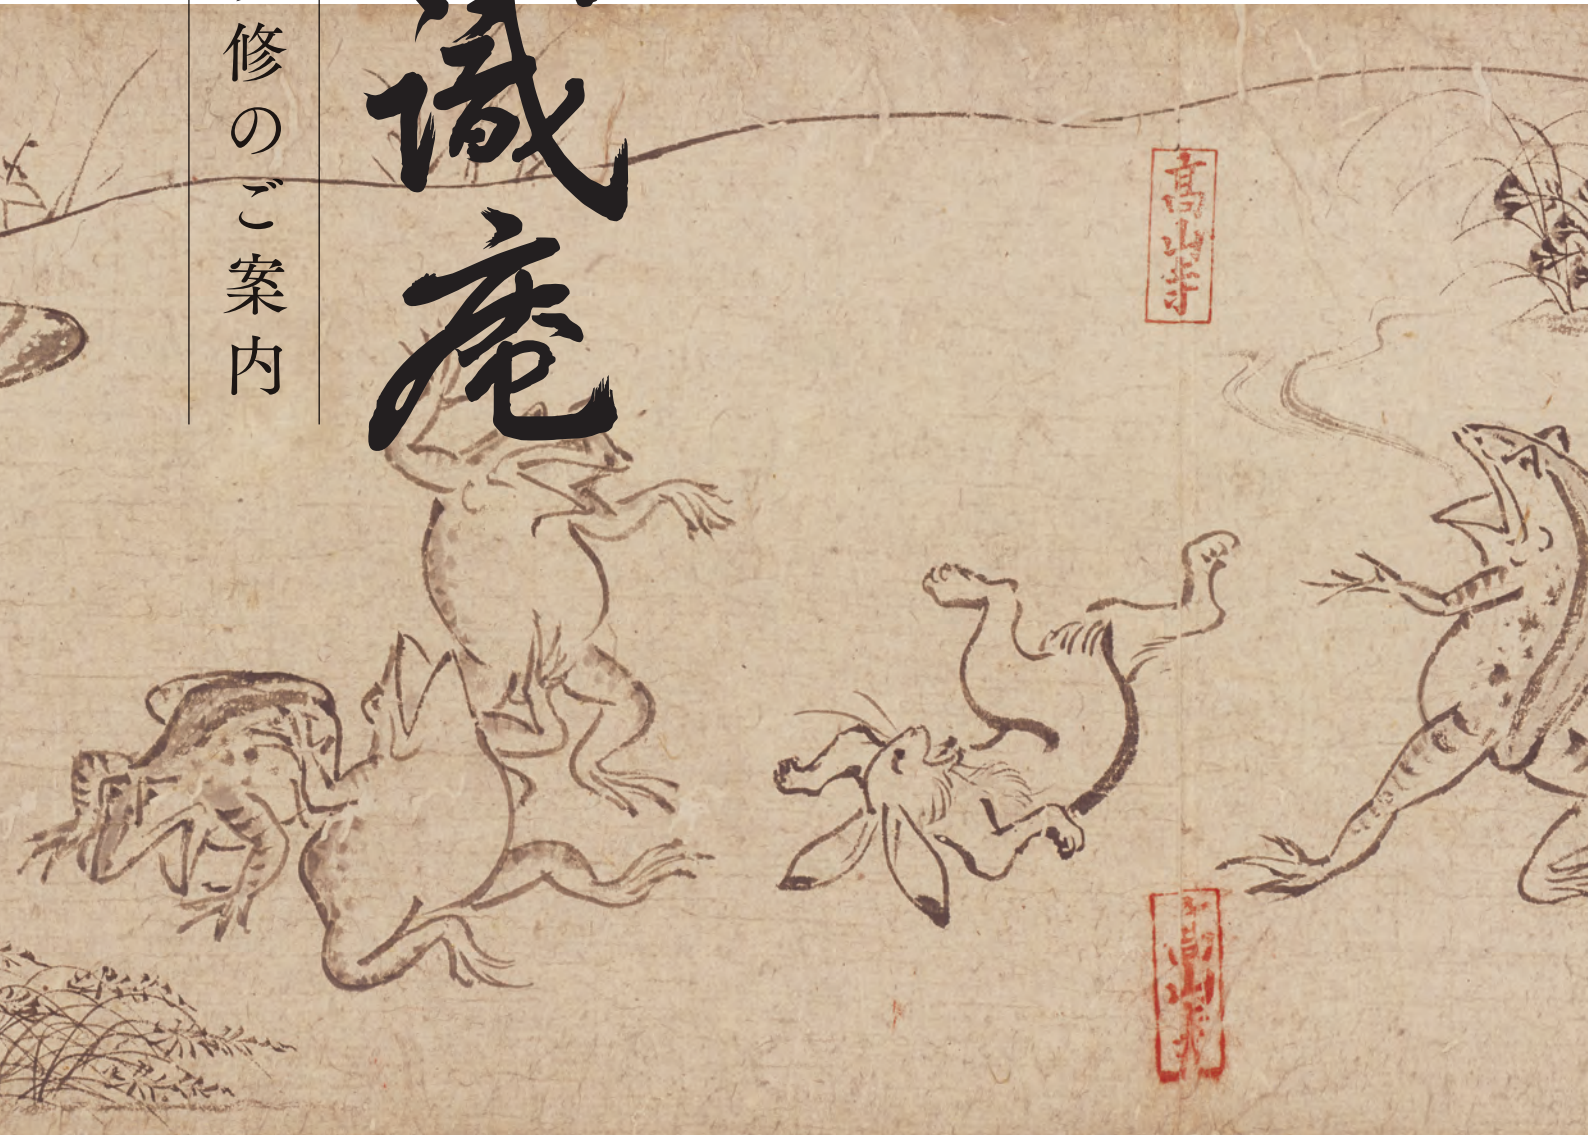 識庵
修のご案内
高山寺
高山寺